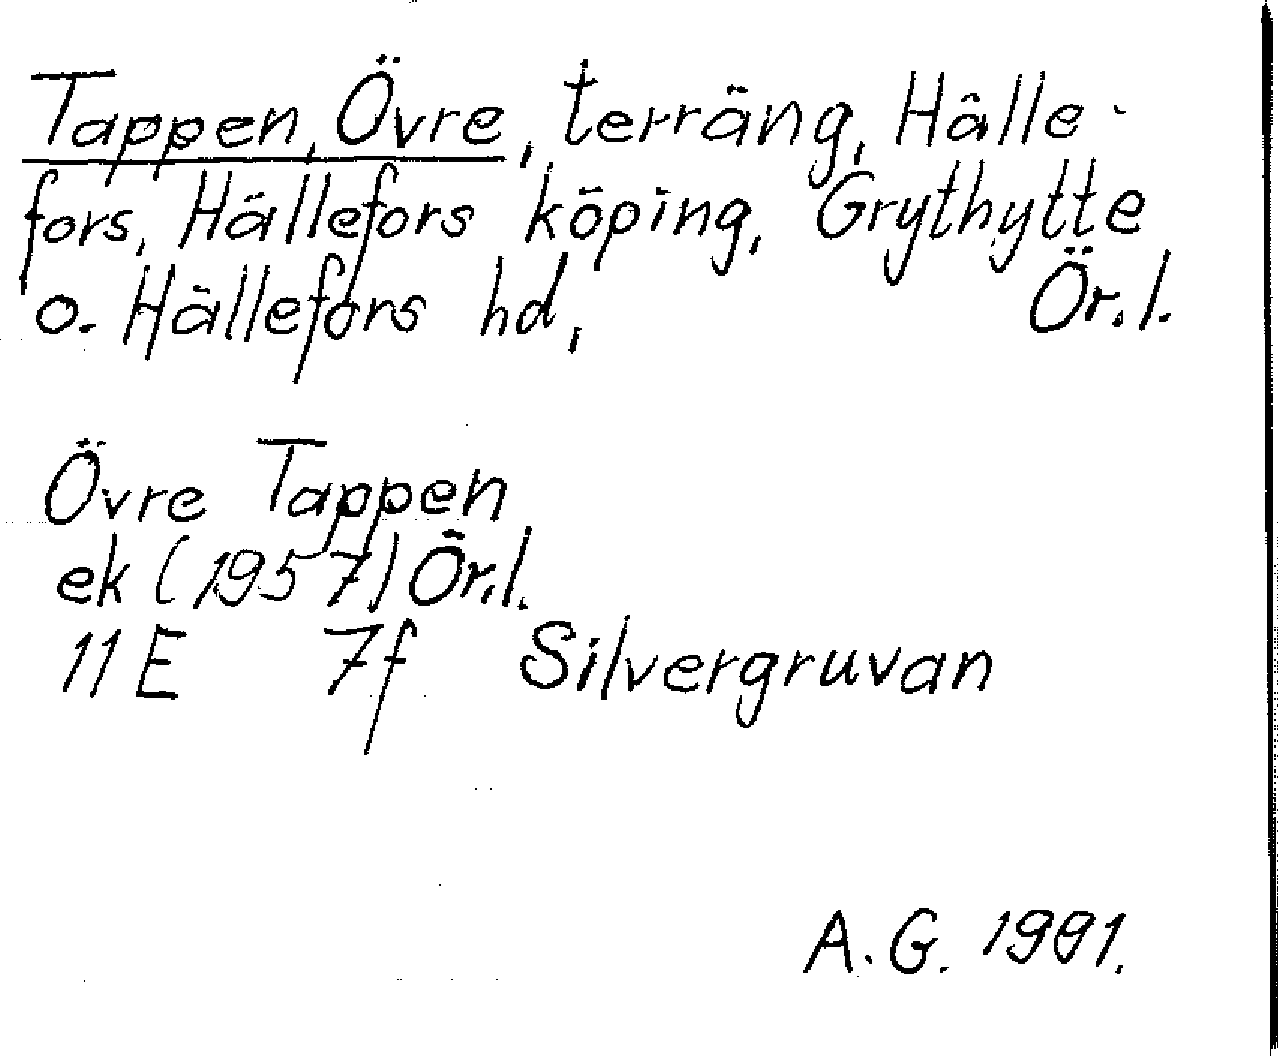 Tappen, Övre, terräng, Hälle-
fors, Hällefors köping, Grythytte
o. Hällefors hd, Ör.l.
Övre Tappen
ek (1957) Ör.l.
11E 7f Silvergruvan
A.G. 1991.